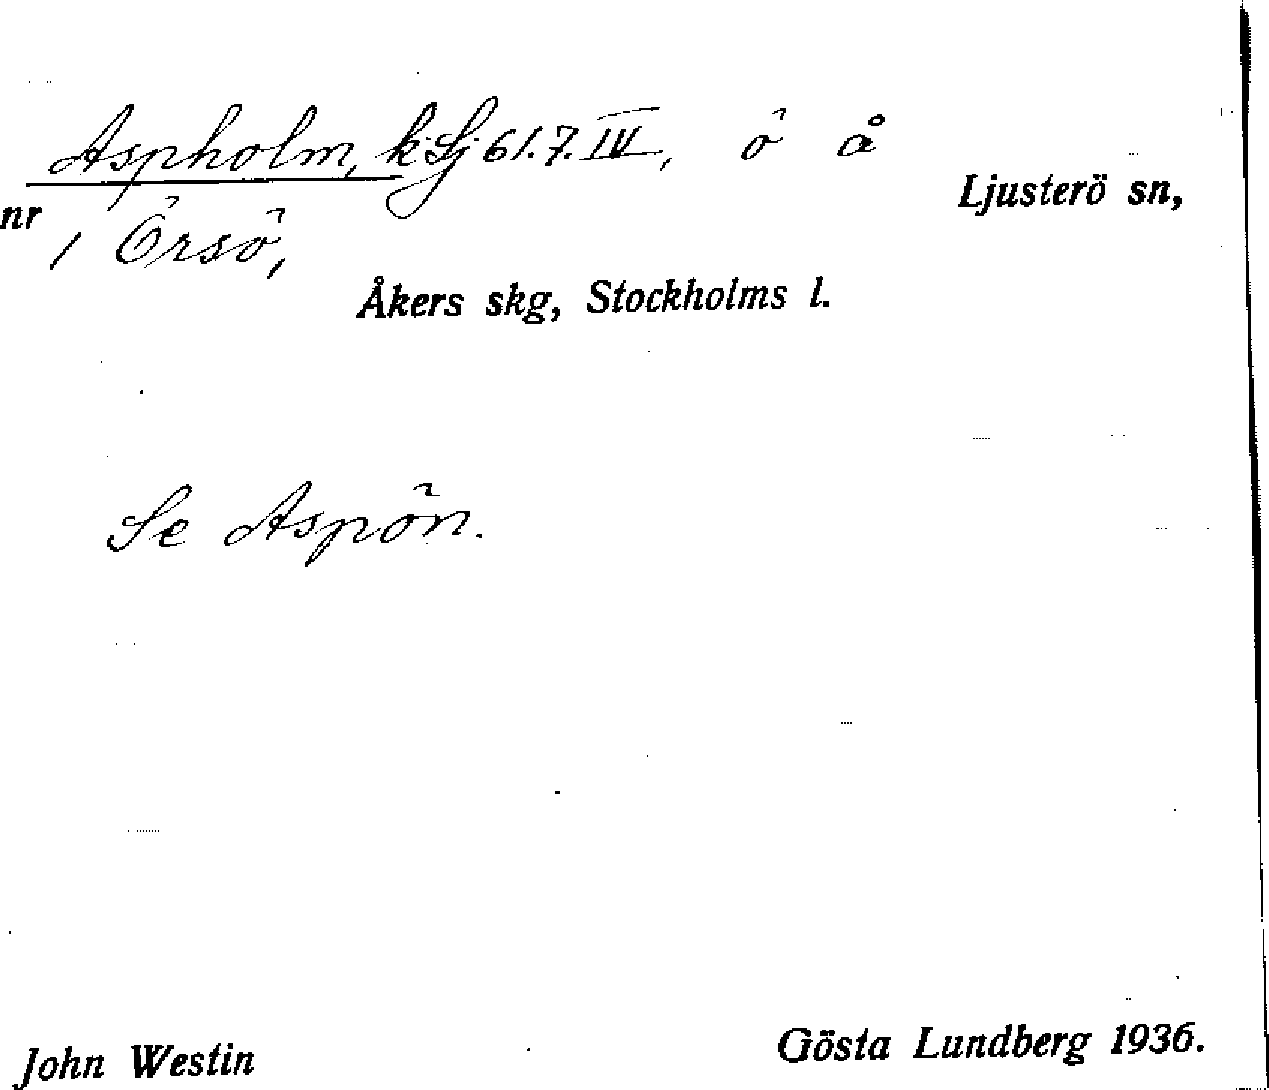 Aspholm, k: Lj 61.7. IV, ö å
Ljusterö sn,
nr 1 Örsö,
Åkers skg, Stockholms l.
Se Aspön.
John Westin
Gösta Lundberg 1936.